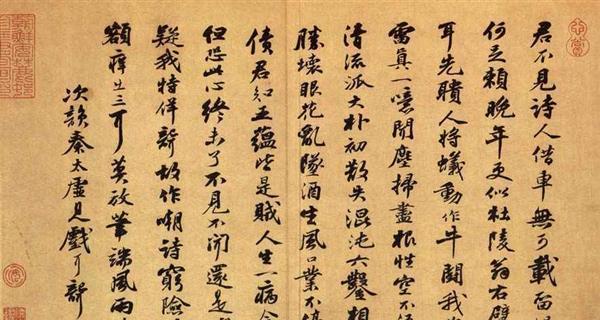 君不見詩人借車無可載留
何足賴晚年更似杜陵翁右臂
耳先聵人將蟻動作牛鬭我
雷真一噫聞塵掃盡根性空不
清流派大朴初散失混沌六鑿相
勝壞眼花亂墜酒生風口業不停
債君知五蘊皆是賊人生一病今
但恐此心終未了不見不聞還是
疑我特佯聾故作嘲詩窮險
額痒出三耳莫放筆端風雨
次韻秦太虛見戲耳聾